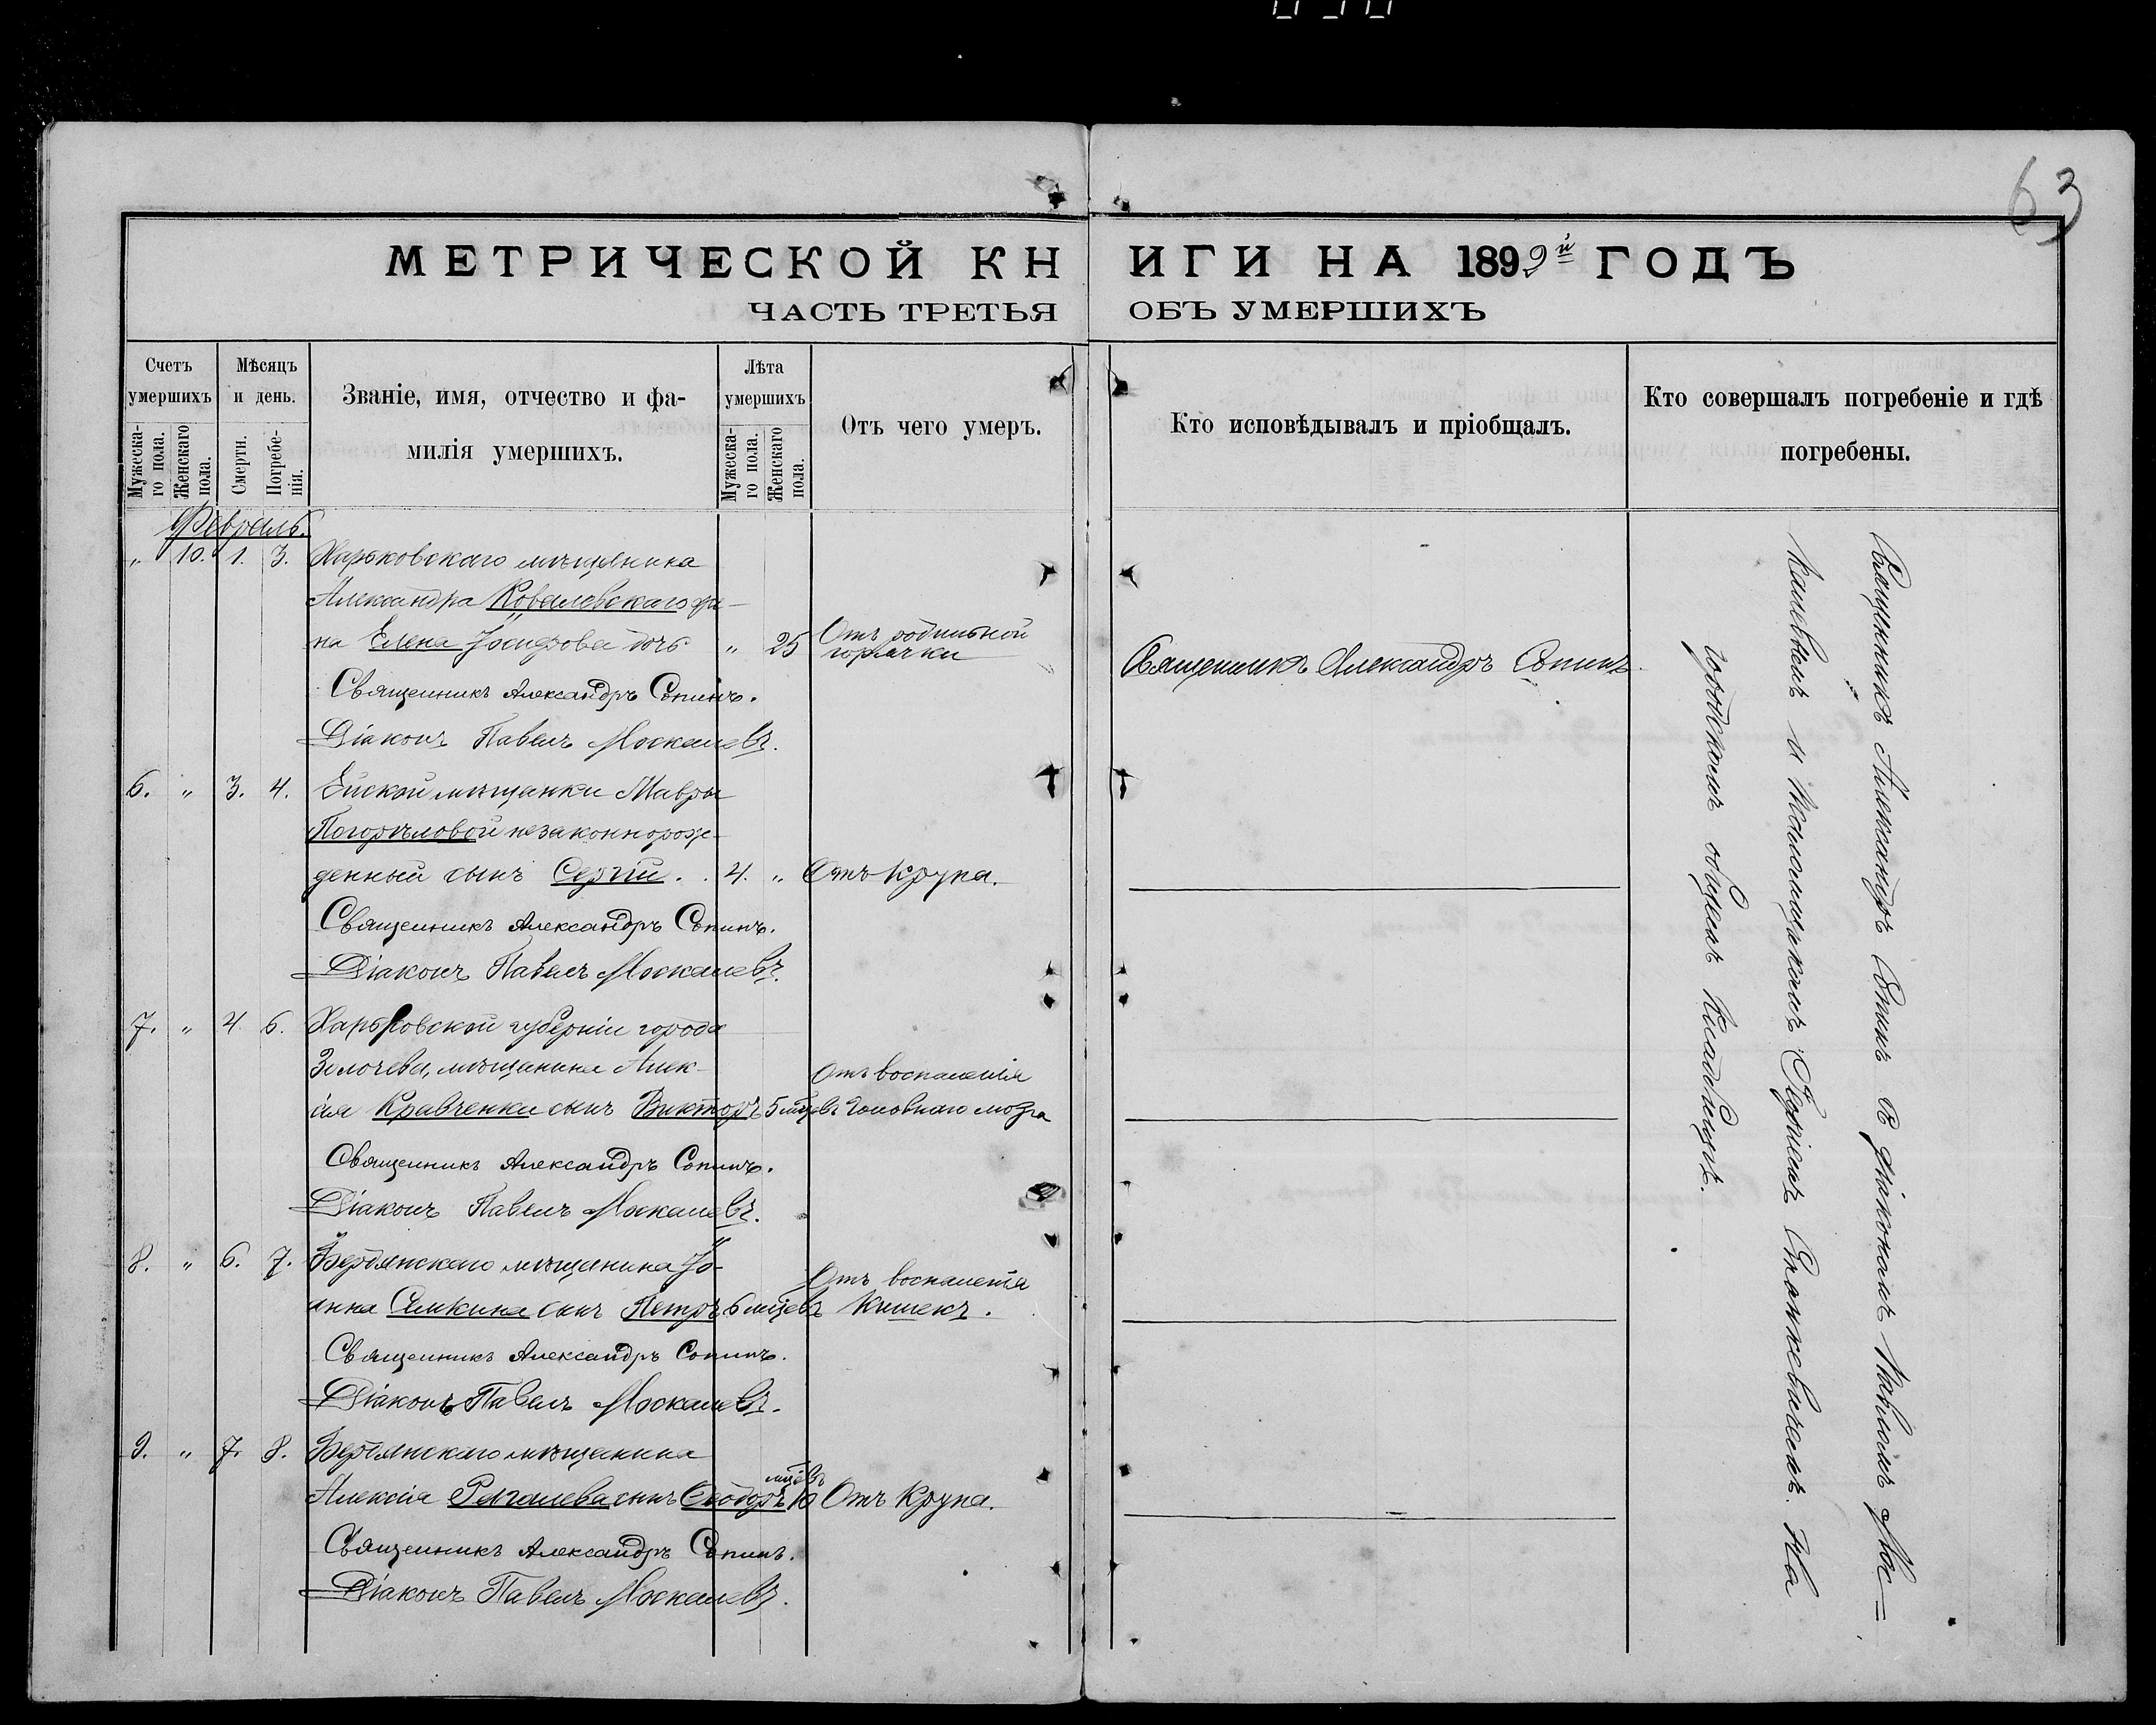 63
МЕТРИЧЕСКОЙ КНИГИ НА 1899й ГОДЪ
ЧАСТЬ ТРЕТЬЯ ОБЪ УМЕРШИХЪ
Счетъ умершихъ
Мужеска-го пола.
Женскаго пола.
Мѣсяцъ и день.
Смерти.
Погребе-нія.
Званіе, имя, отчество и фа-
милія умершихъ.
Лѣта умершихъ
Мужеска-го пола.
Женскаго пола.
Отъ чего умеръ.
Кто исповѣдывалъ и пріобщалъ.
Кто совершалъ погребеніе и гдѣ
погребены.
Февраль.
" 10. 1. 3. Харьковскаго мѣщанина
Александра Ковалевскаго же-
на Елена Іосифова дочь " 25 Отъ родильной
горячки
Священникъ Александръ Сопинъ.
Священникъ Александръ Сопинъ.
Діаконъ Павелъ Москалевъ.
6. " 3. 4. Ейской мѣщанки Мавры
Погорѣловой незаконнорож-
денный сынъ Сергій. . 4. " Отъ крупа.
Священникъ Александръ Сопинъ.
Діаконъ Павелъ Москалевъ.
7. " 4. 6. Харьковской губерніи города
Золочева, мѣщанина Алек-
сія Кравченки сынъ Викторъ 5 мѣсцевъ Отъ воспаленія
головнаго мозга
Священникъ Александръ Сопинъ.
Діаконъ Павелъ Москалевъ.
8. " 6. 7. Бердянскаго мѣщанина Іо-
анна Симкина сынъ Петръ 6 мѣсцевъ Отъ воспаленія
кишекъ.
Священникъ Александръ Сопинъ.
Діаконъ Павелъ Москалевъ.
9. " 7. 8. Бердянскаго мѣщанина
Алексія сынъ Ѳеодоръ 10 мѣсцевъ Отъ крупа.
Священникъ Александръ Сопинъ.
Діаконъ Павелъ Москалевъ.
Священникъ Александръ Сопинъ съ діакономъ Павломъ Мос=
калевымъ и псаломщикомъ Сергіемъ Станкевичемъ. На
городскомъ общемъ кладбищѣ.